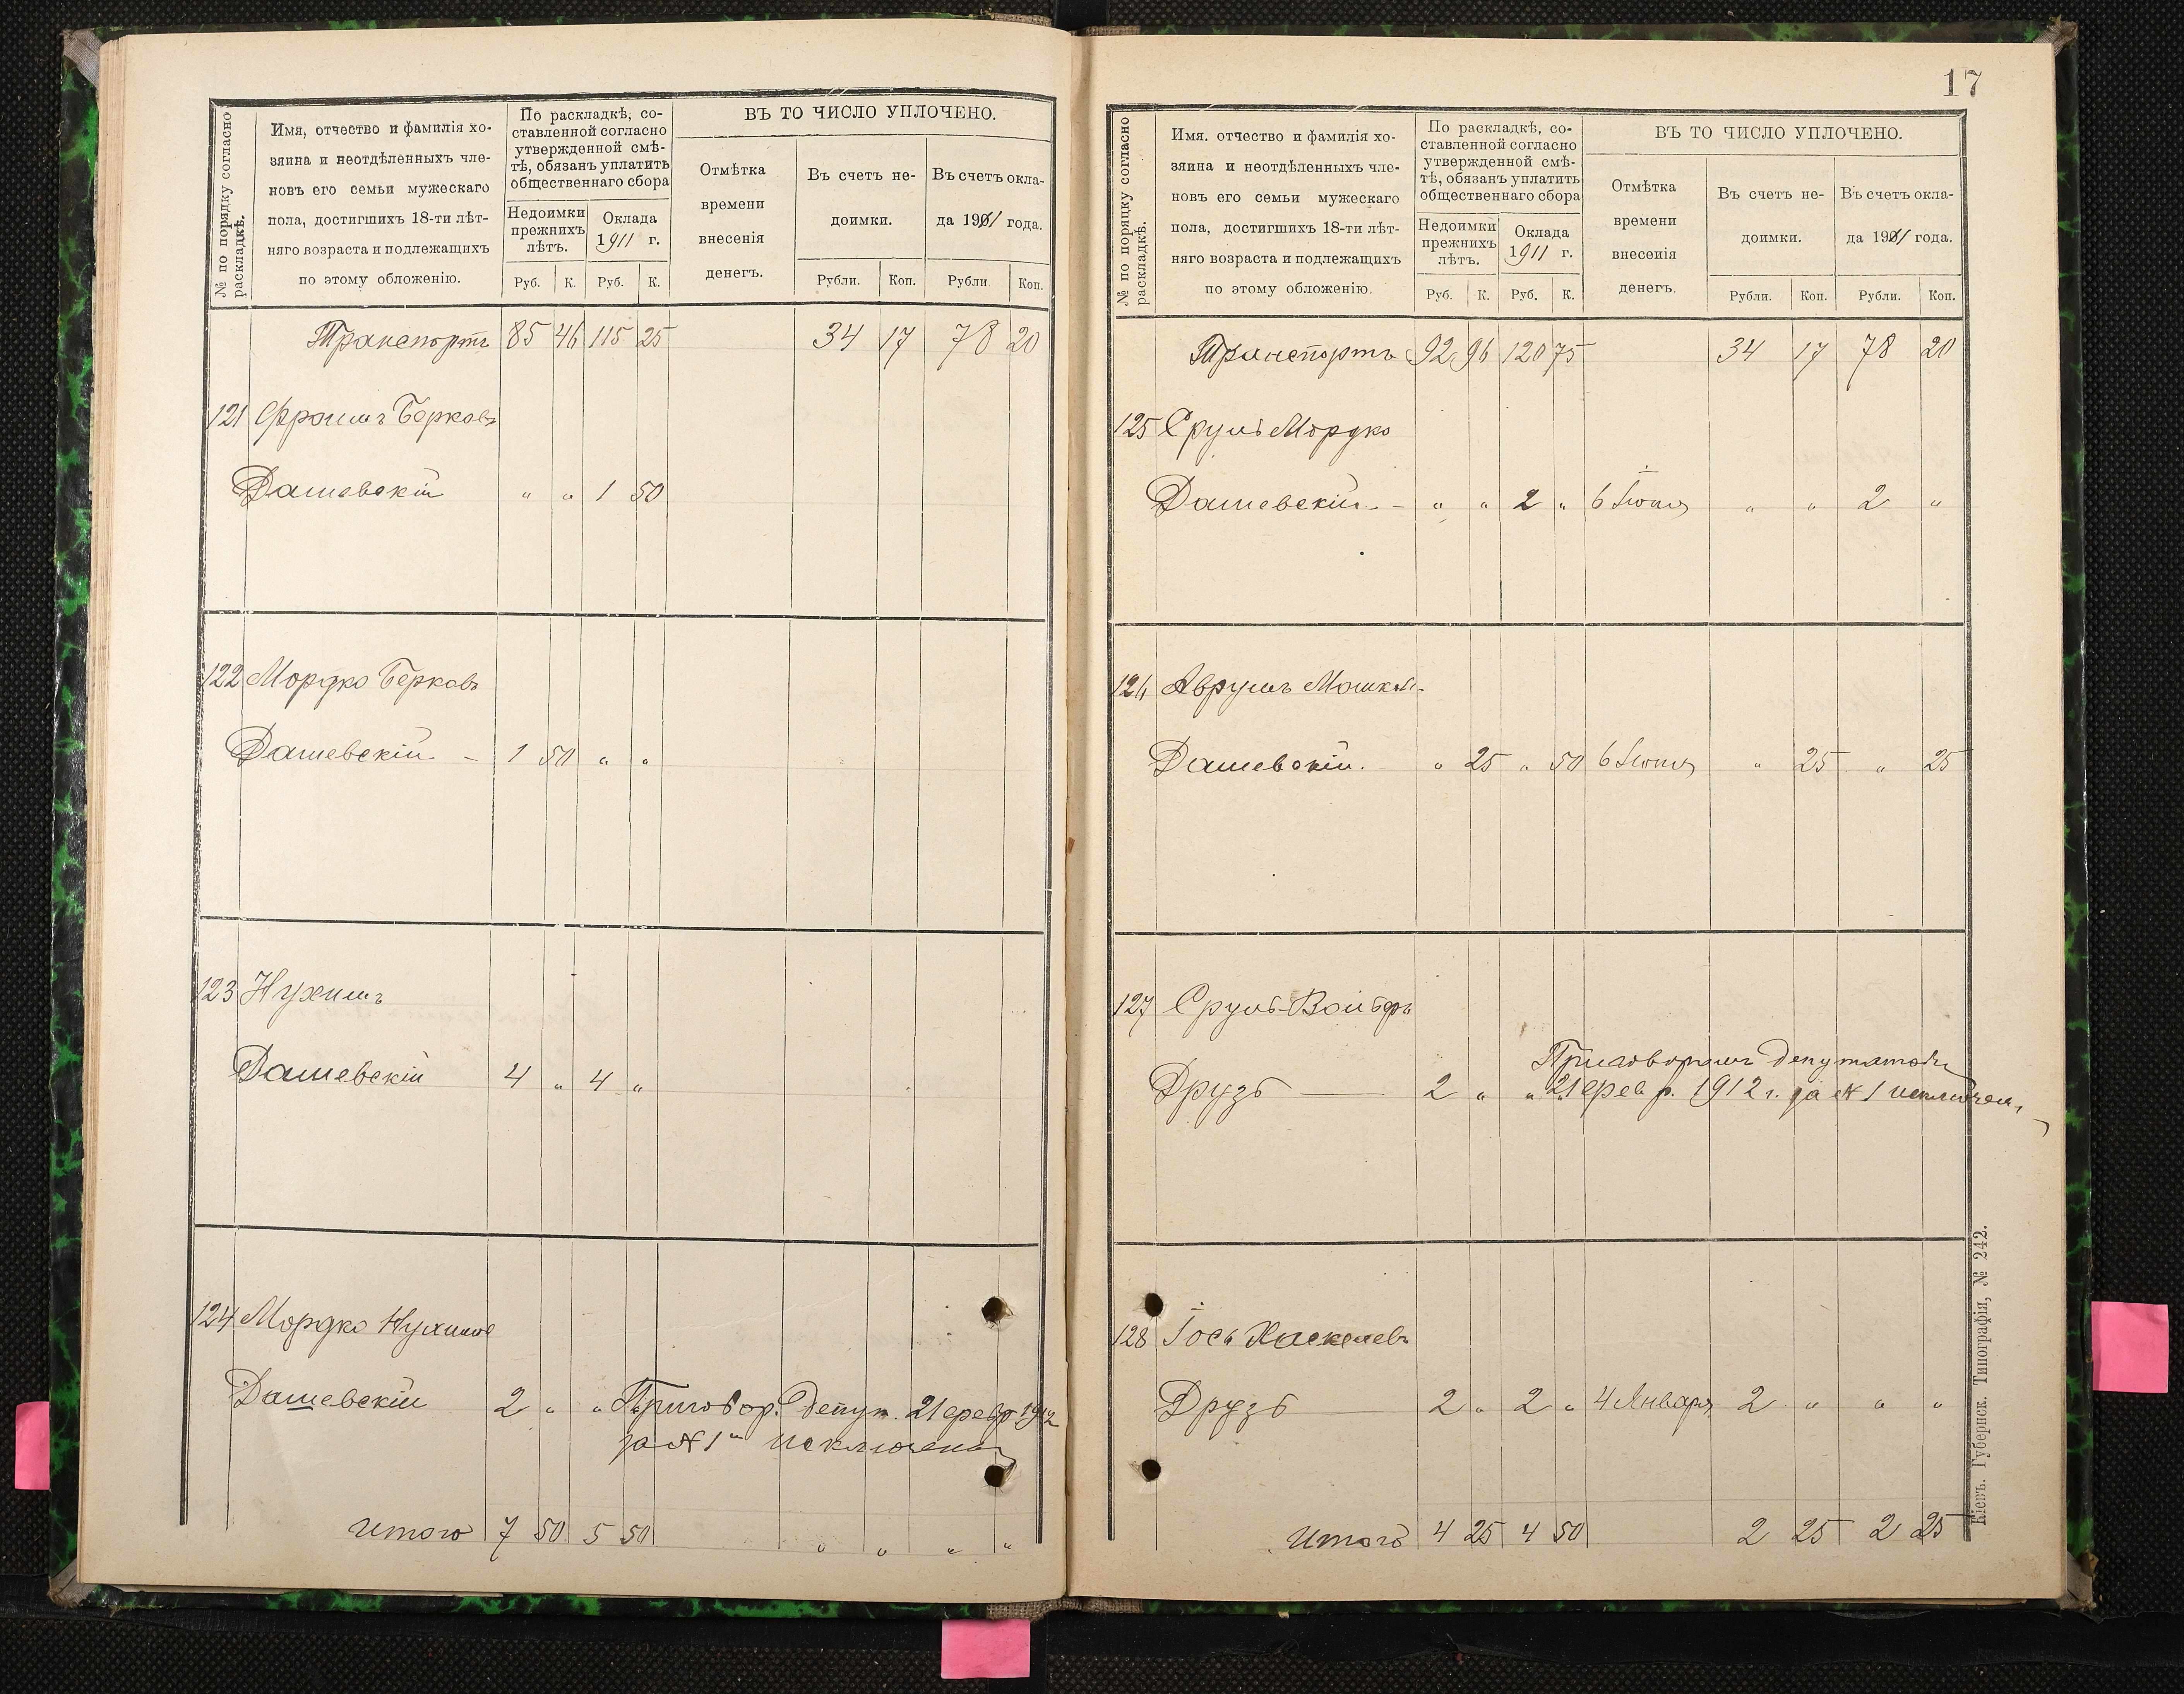 № по порядку согласно раскладкѣ.
Имя, отчество и фамилія хозяина и неотдѣленныхъ членовъ его семьи мужескаго пола, достигшихъ 18-ти лѣтняго возраста и подлежащихъ по этому обложенію.
По раскладкѣ, составленной согласно утвержденной смѣтѣ, обязанъ уплатить общественнаго сбора
Недоимки прежнихъ лѣтъ.
Оклада 1911 г.
ВЪ ТО ЧИСЛО УПЛОЧЕНО.
Отмѣтка времени внесенія денегъ.
Въ счетъ недоимки.
Въ счетъ оклада 1911 года.
Руб. К. Руб. К. Рубли. Коп. Рубли Коп.
Транспортъ 85 46 115 25 34 17 78 20
121 Фроимъ Берковъ
Дашевскій " " 1 50
122 Мордко Берковъ
Дашевскій - 1 50 " "
123 Нухимъ
Дашевскій 4 " 4 "
124 Мордко Нухимов
Дашевскій 2 " " " Приговор. депут. 21 февр 1912
за № 1 исключенъ
Итого 7 50 5 50 " " " "
17
№ по порядку согласно раскладкѣ.
Имя. отчество и фамилія хозяина и неотдѣленныхъ членовъ его семьи мужескаго пола, достигшихъ 18-ти лѣтняго возраста и подлежащихъ по этому обложенію.
По раскладкѣ, составленной согласно утвержденной смѣтѣ, обязанъ уплатить общественнаго сбора
Недоимки прежнихъ лѣтъ.
Оклада 1911 г.
ВЪ ТО ЧИСЛО УПЛОЧЕНО.
Отмѣтка времени внесенія денегъ.
Въ счетъ недоимки.
Въ счетъ оклада 1911 года.
Руб. К. Руб. К. Рубли. Коп. Рубли. Коп.
Транспортъ 92 96 120 75 34 17 78 20
125 Сруль Мордко
Дашевскій - " " 2 " 6 Іюня " " 2 "
126 Аврумъ Мошков.
Дашевскій. " 25 " 50 6 Іюня " 25 " 25
127 Сруль-Вольфъ
Приговоромъ депутатовъ
Друзь 2 " " " 21 февр. 1912 г. за № 1 исключен.
128 Іось Хаскелевъ
Друзь 2 " 2 " 4 Января 2 " " "
Итого 4 25 4 50 2 25 2 25
Кіевъ. Губернск. Типографія, № 242.